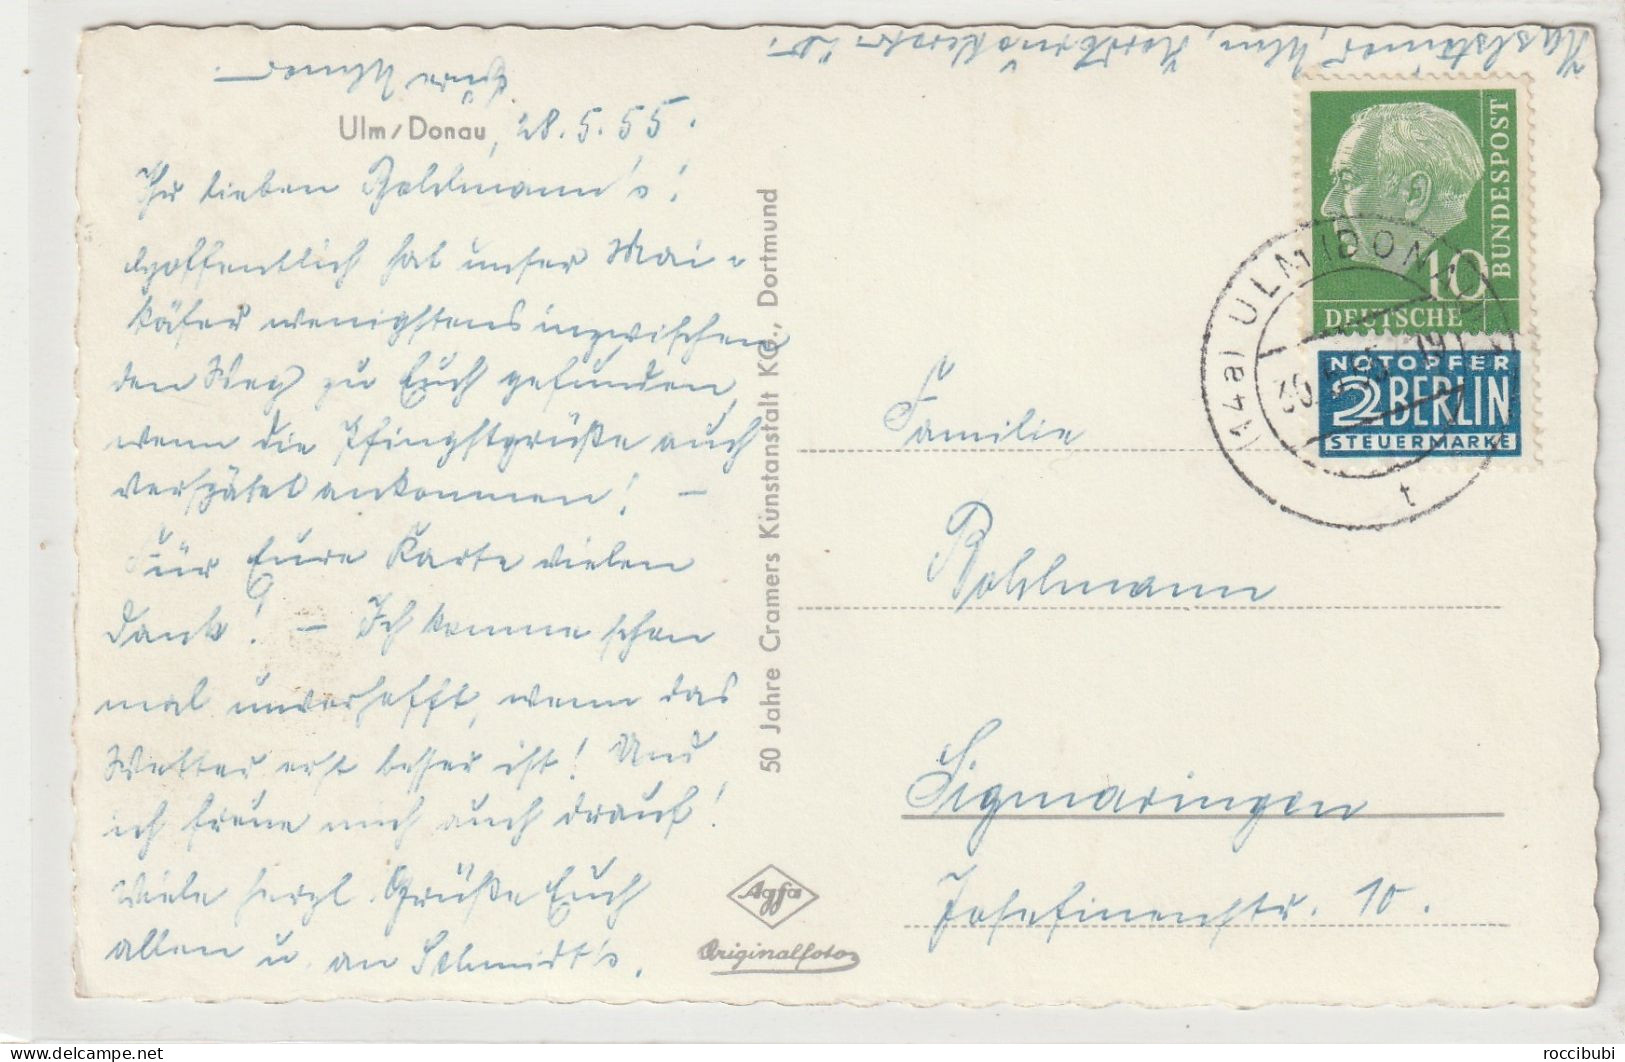 Ulm/Donau, 28.5.55.
Ihr lieben Bohlmann's!
Hoffentlich hat unser Mai-
käfer wenigstens inzwischen
den Weg zu Euch gefunden,
wenn die Pfingstgrüße auch
verspätet ankommen! –
Für Eure Karte vielen
Dank! – Ich komme schon
mal unverhofft, wenn das
Wetter erst besser ist! Und
ich freue mich auch drauf!
Viele herzl. Grüße Euch
allen u. an Schmidt's.
Eure
50 Jahre Cramers Kunstanstalt KG., Dortmund
Agfa
Originalfoto
Ulm,
DEUTSCHE
BUNDESPOST
10
NOTOPFER
2 BERLIN
STEUERMARKE
(14a) ULM (DONAU)
30.5.55
t
Familie
Bohlmann
Sigmaringen
Josefinenstr. 10.
roccibubi